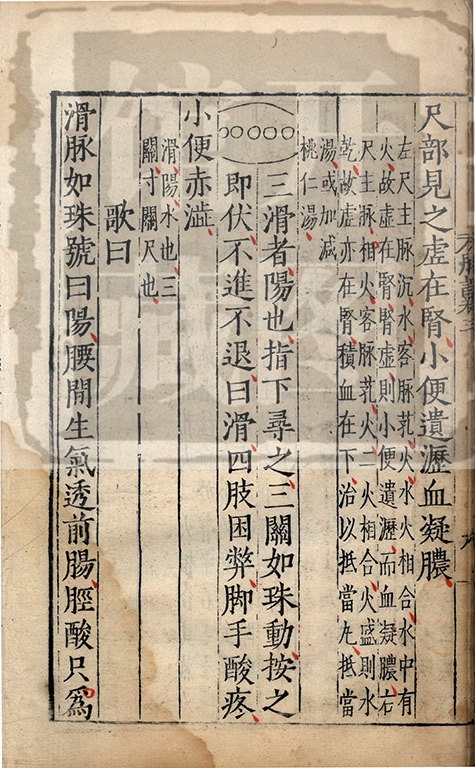 尺部見之虛在腎小便遺瀝血凝膿
左尺主脉沉水客脉芤火水火相合水中有
火故虛在腎腎虛則小便遺瀝而血凝膿右
尺主脉相火客脉芤火二火相合火盛則水
乾故虛亦在腎積血在下治以抵當丸抵當
湯或加減
桃仁湯
三滑者陽也指下尋之三關如珠動按之
即伏不進不退曰滑四肢困弊脚手酸疼
小便赤澁
滑陽水也三
關寸關尺也
歌曰
滑脉如珠號曰陽腰間生氣透前腸脛酸只爲